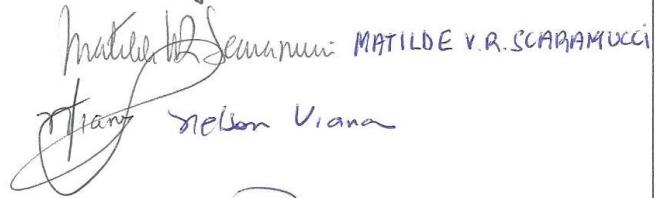 Matilde V.R. Scaramucci MATILDE V.R. SCARAMUCCI
Nelson Viana